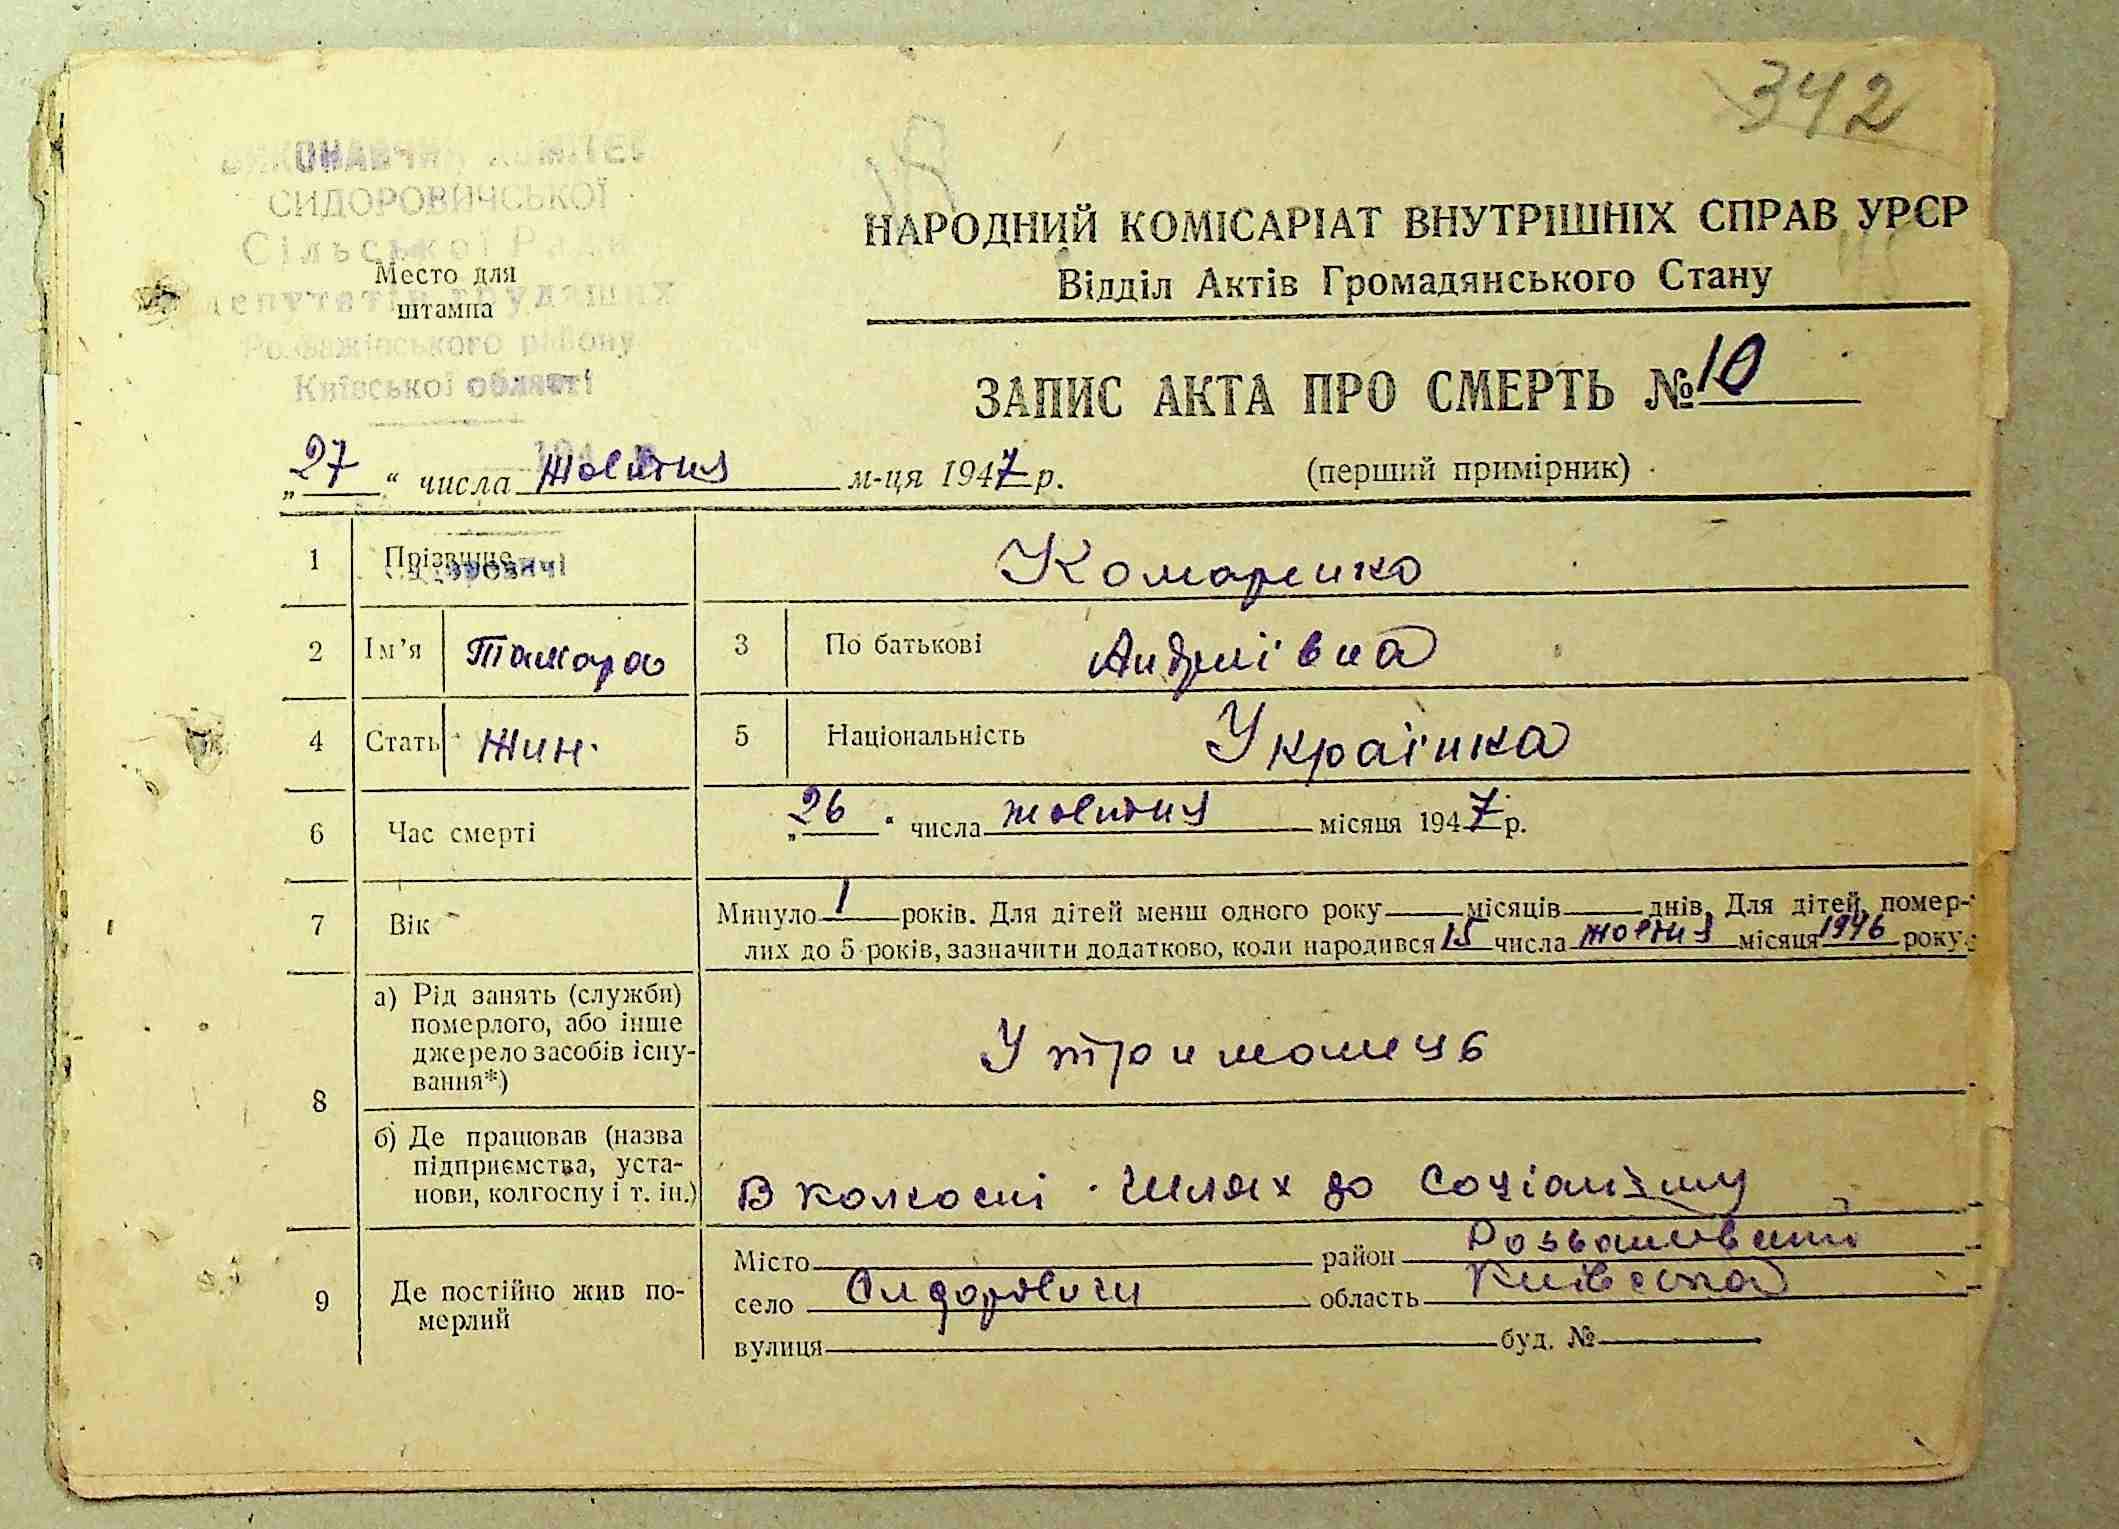 342
ВИКОНАВЧИЙ КОМІТЕТ
СИДОРОВИЧСЬКОЇ
Сільської Ради
депутатів трудящих
Розважівського району
Київської області
Место для
штампа
НАРОДНИЙ КОМІСАРІАТ ВНУТРІШНІХ СПРАВ УРЄР
Відділ Актів Громадянського Стану
ЗАПИС АКТА ПРО СМЕРТЬ № 10
„27“ числа жовтня м-ця 1947 р.
(перший примірник)
1 Прізвище Комаренко
2 Ім'я Тамара 3 По батькові Андріївна
4 Стать Жин. 5 Національність Українка
6 Час смерті „26“ числа жовтня місяця 1947 р.
7 Вік Минуло 1 років. Для дітей менш одного року — місяців — днів. Для дітей, помер-
лих до 5 років, зазначити додатково, коли народився 15 числа жовтня місяця 1946 року
8 а) Рід занять (служби)
померлого, або інше
джерело засобів існу-
вання*)
Утриманець
б) Де працював (назва
підприємства, уста-
нови, колгоспу і т. ін.)
В колгоспі Шлях до Соціалізму
9 Де постійно жив по-
мерлий
Місто — район Розважівський
село Сидоровичи область Київська
вулиця — буд. № —